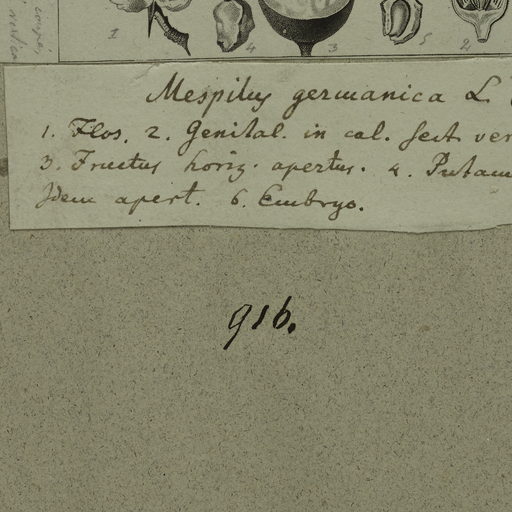 1 4 3 5 2
Mespilus germanica L.
1. Flos. 2. Genital. in cal. sect. ver
3. Fructus horiz. apertus. 4. Putam
Idem apert. 6. Embryo.
916.